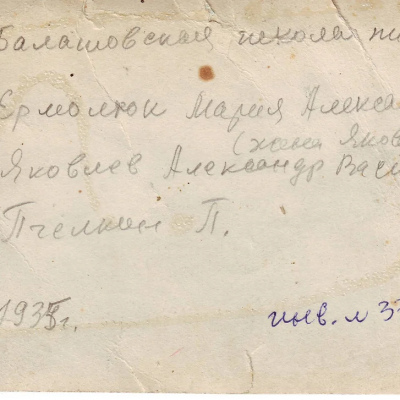 Балашовская школа пи
Ермолюк Мария Алекса
(жена Яков
Яковлев Александр Васи
Пчелкин П.
1935г.
инв. № 3